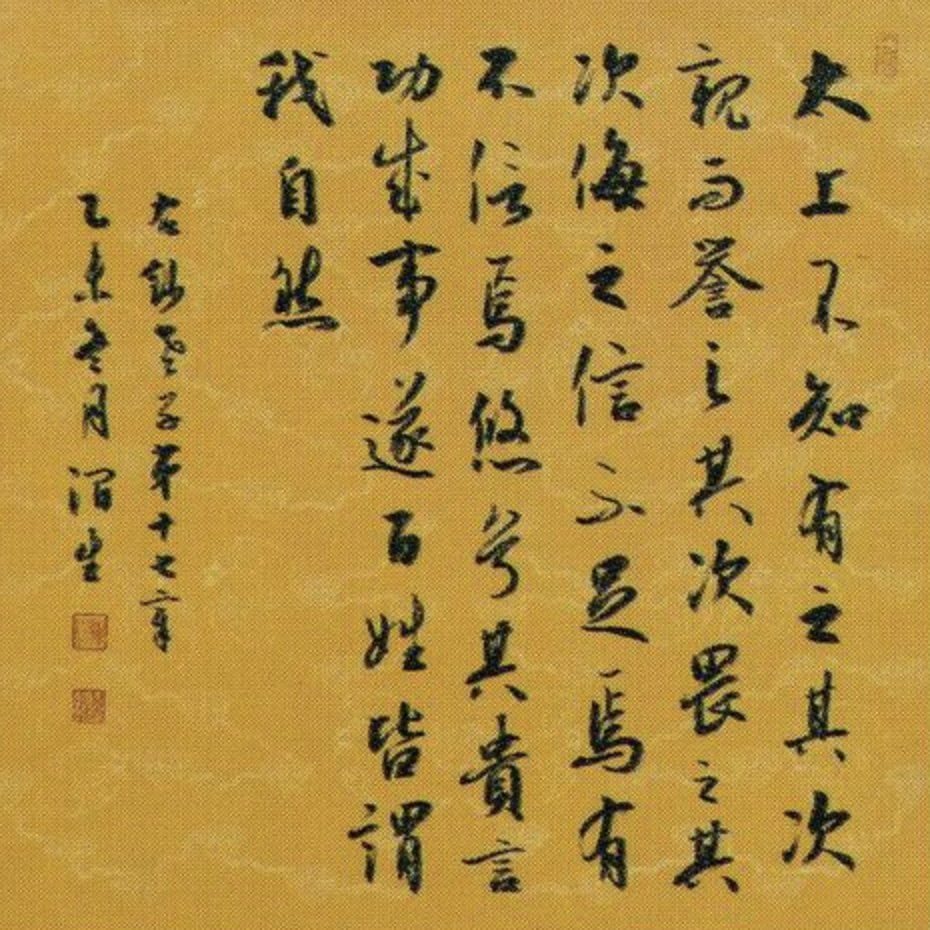 太上不知有之其次
親而譽之其次畏之其
次侮之信不足焉有
不信焉悠兮其貴言
功成事遂百姓皆謂
我自然
右錄老子第十七章
乙未冬月渭生